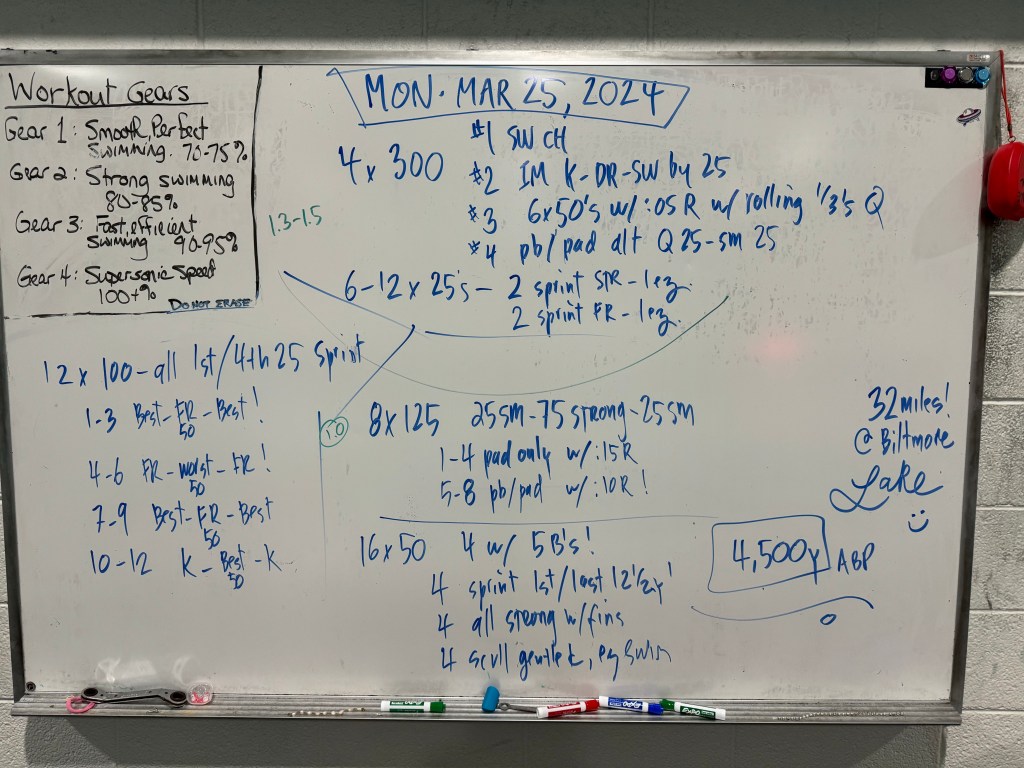 Workout Gears
Gear 1: Smooth, Perfect
Swimming. 70-75%
Gear 2: Strong swimming
80-85%
Gear 3: Fast, efficient
Swimming 90-95%
Gear 4: Supersonic Speed
100+%
DO NOT ERASE
MON. MAR 25, 2024
4 x 300
#1 SW CH
#2 IM K-DR-SW by 25
#3 6x50's w/:05 R w/ rolling 1/3's Q
#4 pb/pad alt Q 25-sm 25
1.3-1.5
6-12 x 25's - 2 sprint STR - 1 ez
2 sprint FR - 1 ez
12 x 100 - all 1st/4th 25 sprint
1-3 Best-FR-Best!
50
4-6 FR-worst-FR!
50
7-9 Best-FR-Best
50
10-12 K-Best-K
50
1.0
8x125 25sm-75strong-25sm
1-4 pad only w/:15R
5-8 pb/pad w/:10R!
16x50 4 w/ 5B's!
4 sprint 1st/last 12 1/2y!
4 all strong w/fins
4 scull gentle, ez swim
32miles!
@ Biltmore
Lake
4,500y ABP